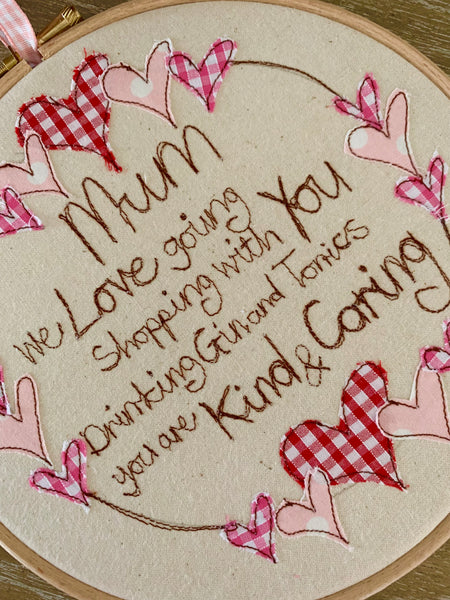 Mum
We Love going
Shopping with You
Drinking Gin and Tonics
you are Kind & Caring